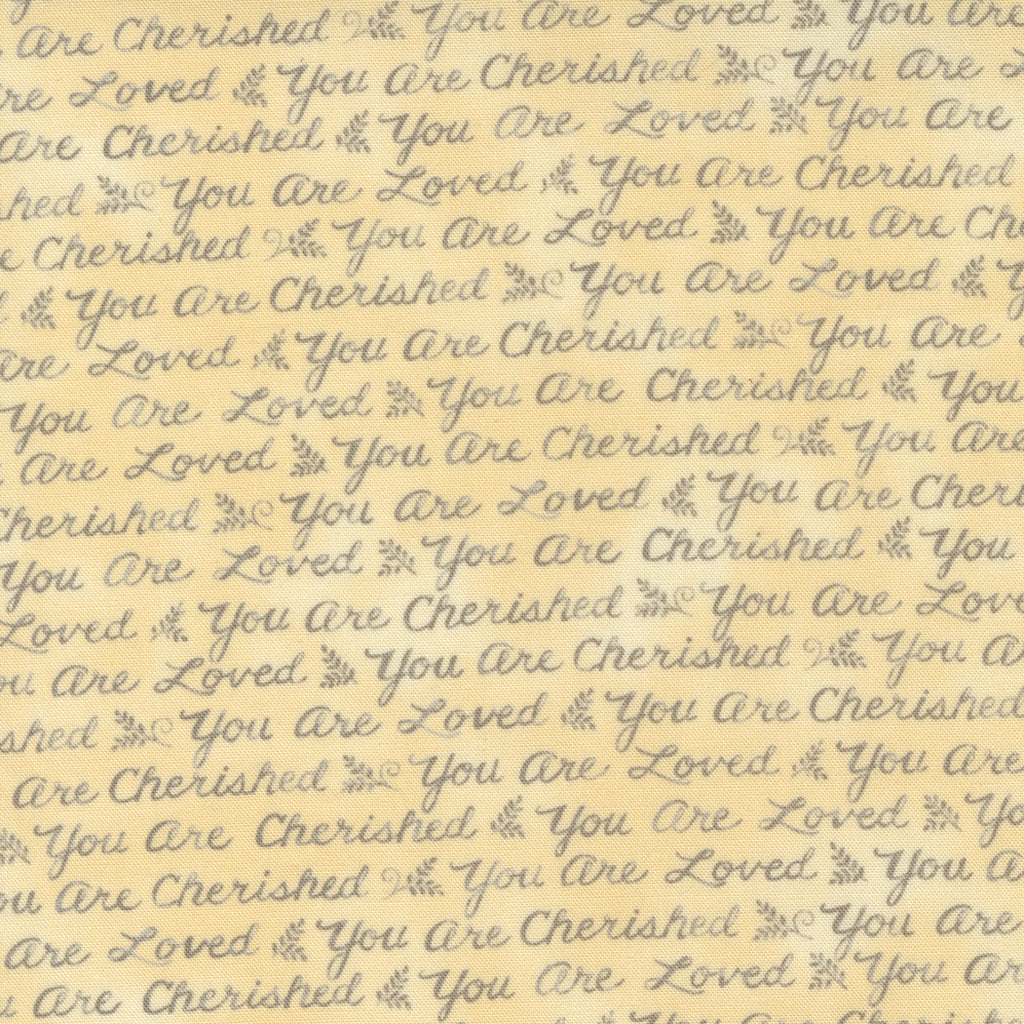 Are Cherished You Are Loved You Are
re Loved You Are Cherished You Are
Are Cherished You Are Loved You Are
shed You Are Loved You Are Cherished
e Cherished You Are Loved You Are Ch
You Are Cherished You Are Loved
Are Loved You Are Cherished You Are
You Are Loved You Are Cherished You
Are Loved You Are Cherished You Are
Cherished You Are Loved You Are Cheri
You Are Loved You Are Cherished You
Loved You Are Cherished You Are Lov
ou Are Loved You Are Cherished You A
shed You Are Loved You Are Cherished
Are Cherished You Are Loved You Are
You Are Cherished You Are Loved Yo
ou Are Cherished You Are Loved You A
Are Loved You Are Cherished You Are
u Are Cherished You Are Loved You Ar